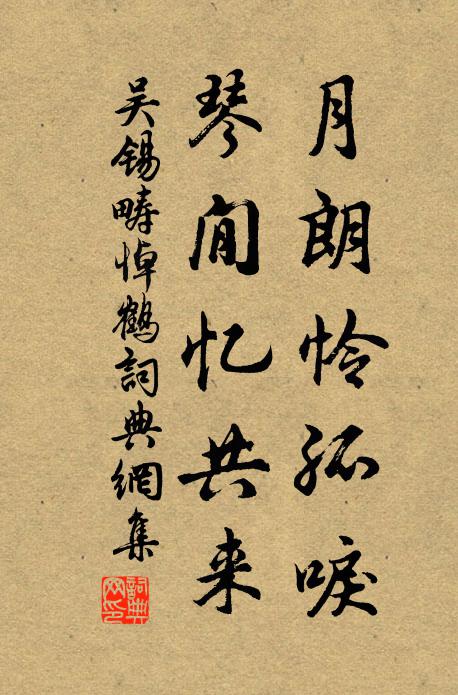 月朗怜孤唳
琴闲忆共来
吴锡畴悼鹤詞典網集
詞典网印